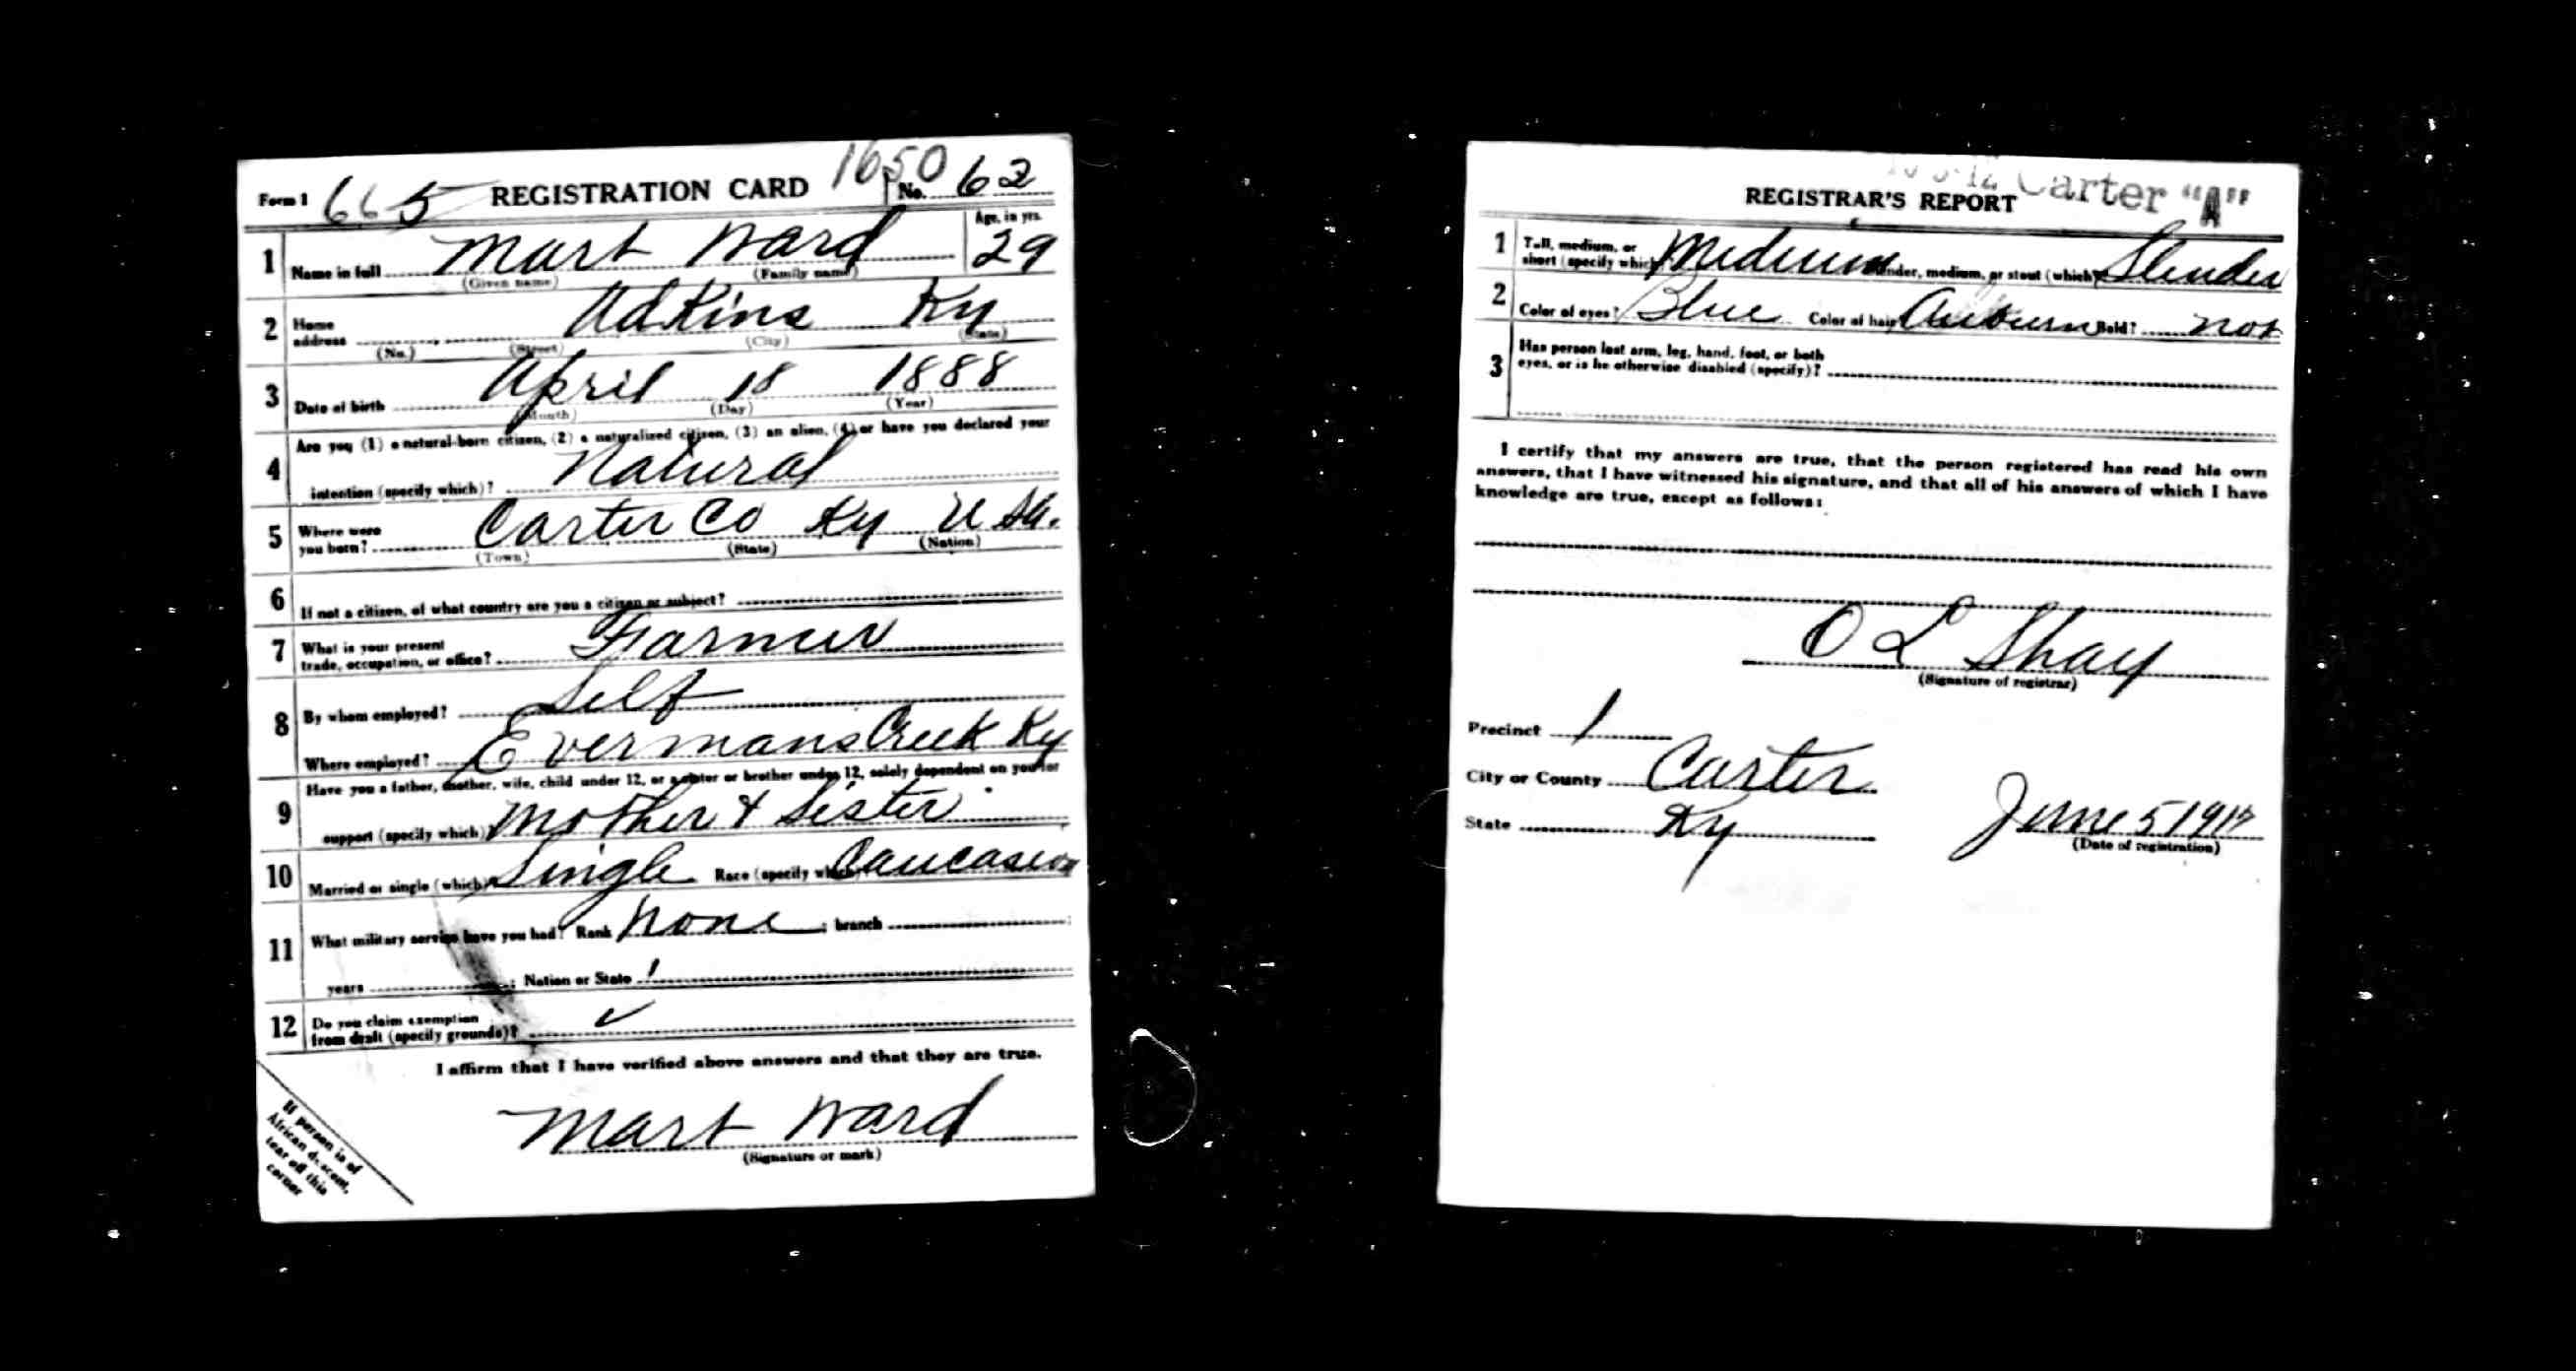 Form 1 665 REGISTRATION CARD 1650 No. 62
1 Name in full Mart Ward Age, in yrs. 29
(Given name) (Family name)
2 Home address Adkins Ky
(No.) (Street) (City) (State)
3 Date of birth April 18 1888
(Month) (Day) (Year)
Are you (1) a natural-born citizen, (2) a naturalized citizen, (3) an alien, (4) or have you declared your
4 intention (specify which)? Natural
5 Where were you born? Carter Co Ky U SA.
(Town) (State) (Nation)
6 If not a citizen, of what country are you a citizen or subject?
7 What is your present trade, occupation, or office? Farmer
8 By whom employed? Self
Where employed? Evermans Creek Ky
Have you a father, mother, wife, child under 12, or a sister or brother under 12, solely dependent on you for
9 support (specify which)? Mother & Sister
10 Married or single (which)? Single Race (specify which)? Caucasion
11 What military service have you had? Rank None ; branch ;
years ; Nation or State
12 Do you claim exemption from draft (specify grounds)? ✓
I affirm that I have verified above answers and that they are true.
Mart Ward
(Signature or mark)
If person is of
African descent,
tear off this
corner
Carter "A"
REGISTRAR'S REPORT
1 Tall, medium, or short (specify which)? Medium Slender, medium, or stout (which)? Slender
2 Color of eyes? Blue Color of hair? Auburn Bald? not
3 Has person lost arm, leg, hand, foot, or both
eyes, or is he otherwise disabled (specify)?
I certify that my answers are true, that the person registered has read his own
answers, that I have witnessed his signature, and that all of his answers of which I have
knowledge are true, except as follows:
O L Shay
(Signature of registrar)
Precinct 1
City or County Carter
State Ky June 5 1917
(Date of registration)